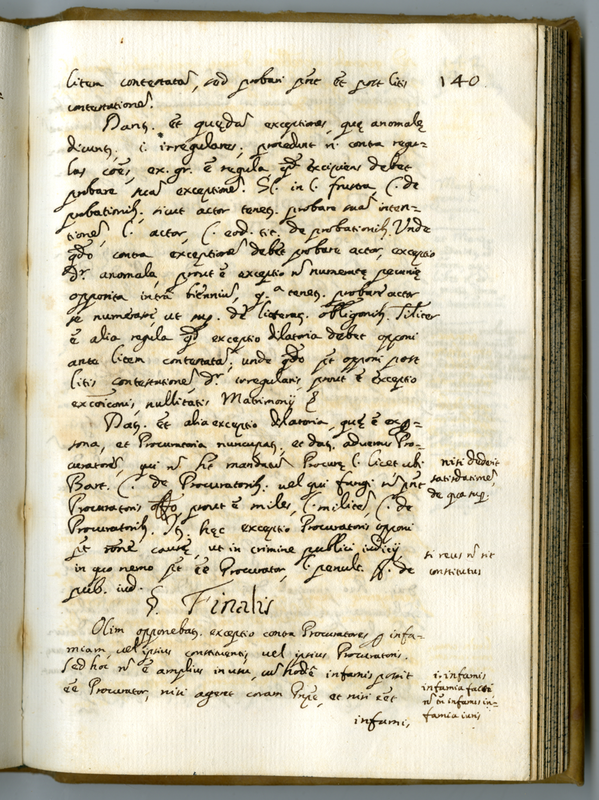 140
litem contestatā, sed probari põt et post litis
contestationē.
Dant. et quędā exceptiones, quę anomalę
dicunt. i. irregulares; procedunt n. contra regu-
las cões, ex. gr. ē regula qd excipiens debet
probare suā exceptionē. Sc. in l. frustra, C. de
probationib. sicut actor tenet. probare suā inten-
tionē, l. actor, C. eod. tit. de probationib. Unde
qdo contra exceptionē debet probare actor, exceptio
dr anomala, prout ē exceptio nō numeratę pecunię
opposita intra bienniū, q. a tenet. probare actor
se numerasse, ut sup. de literar. obligationib. Similiter
ē alia regula qd exceptio dilatoria debet opponi
ante litem contestatā; unde qdo põt opponi post
litis contestationē, dr irregularis prout ē exceptio
excõicõnis, nullitatis Matrimonij &
Dat. et alia exceptio dilatoria, quę ē ex p-
sona, et Procuratoria nuncupat. et dat. adversus Pro-
curatorē, qui nō hēt mandatū Procur. l. licet ubi
Bart. C. de Procuratorib. vel qui fungi nō põt
Procuratoris offo prout ē miles, l. militē, C. de
Procuratorib. It. hęc exceptio Procuratoris opponi
põt rõne causę, ut in crimine publici iudicij
in quo nemo põt ēē Procurator, l. penult. ff. de
pub. iud.
nisi dederit
satisdationē
de qua sup.
si reus nō sit
constitutus
§. Finalis
Olim opponebat. exceptio contra Procuratores p infa-
miam, vel ipsius constituentis, vel ipsius Procuratoris.
Sed hoc nō ē amplius in usu, cū hodiē infamis possit
ēē Procurator, nisi ageret coram Pnpe, et nisi eēt
infami,
i. infamis
infamia facti
nō tn infamis in-
famia iuris